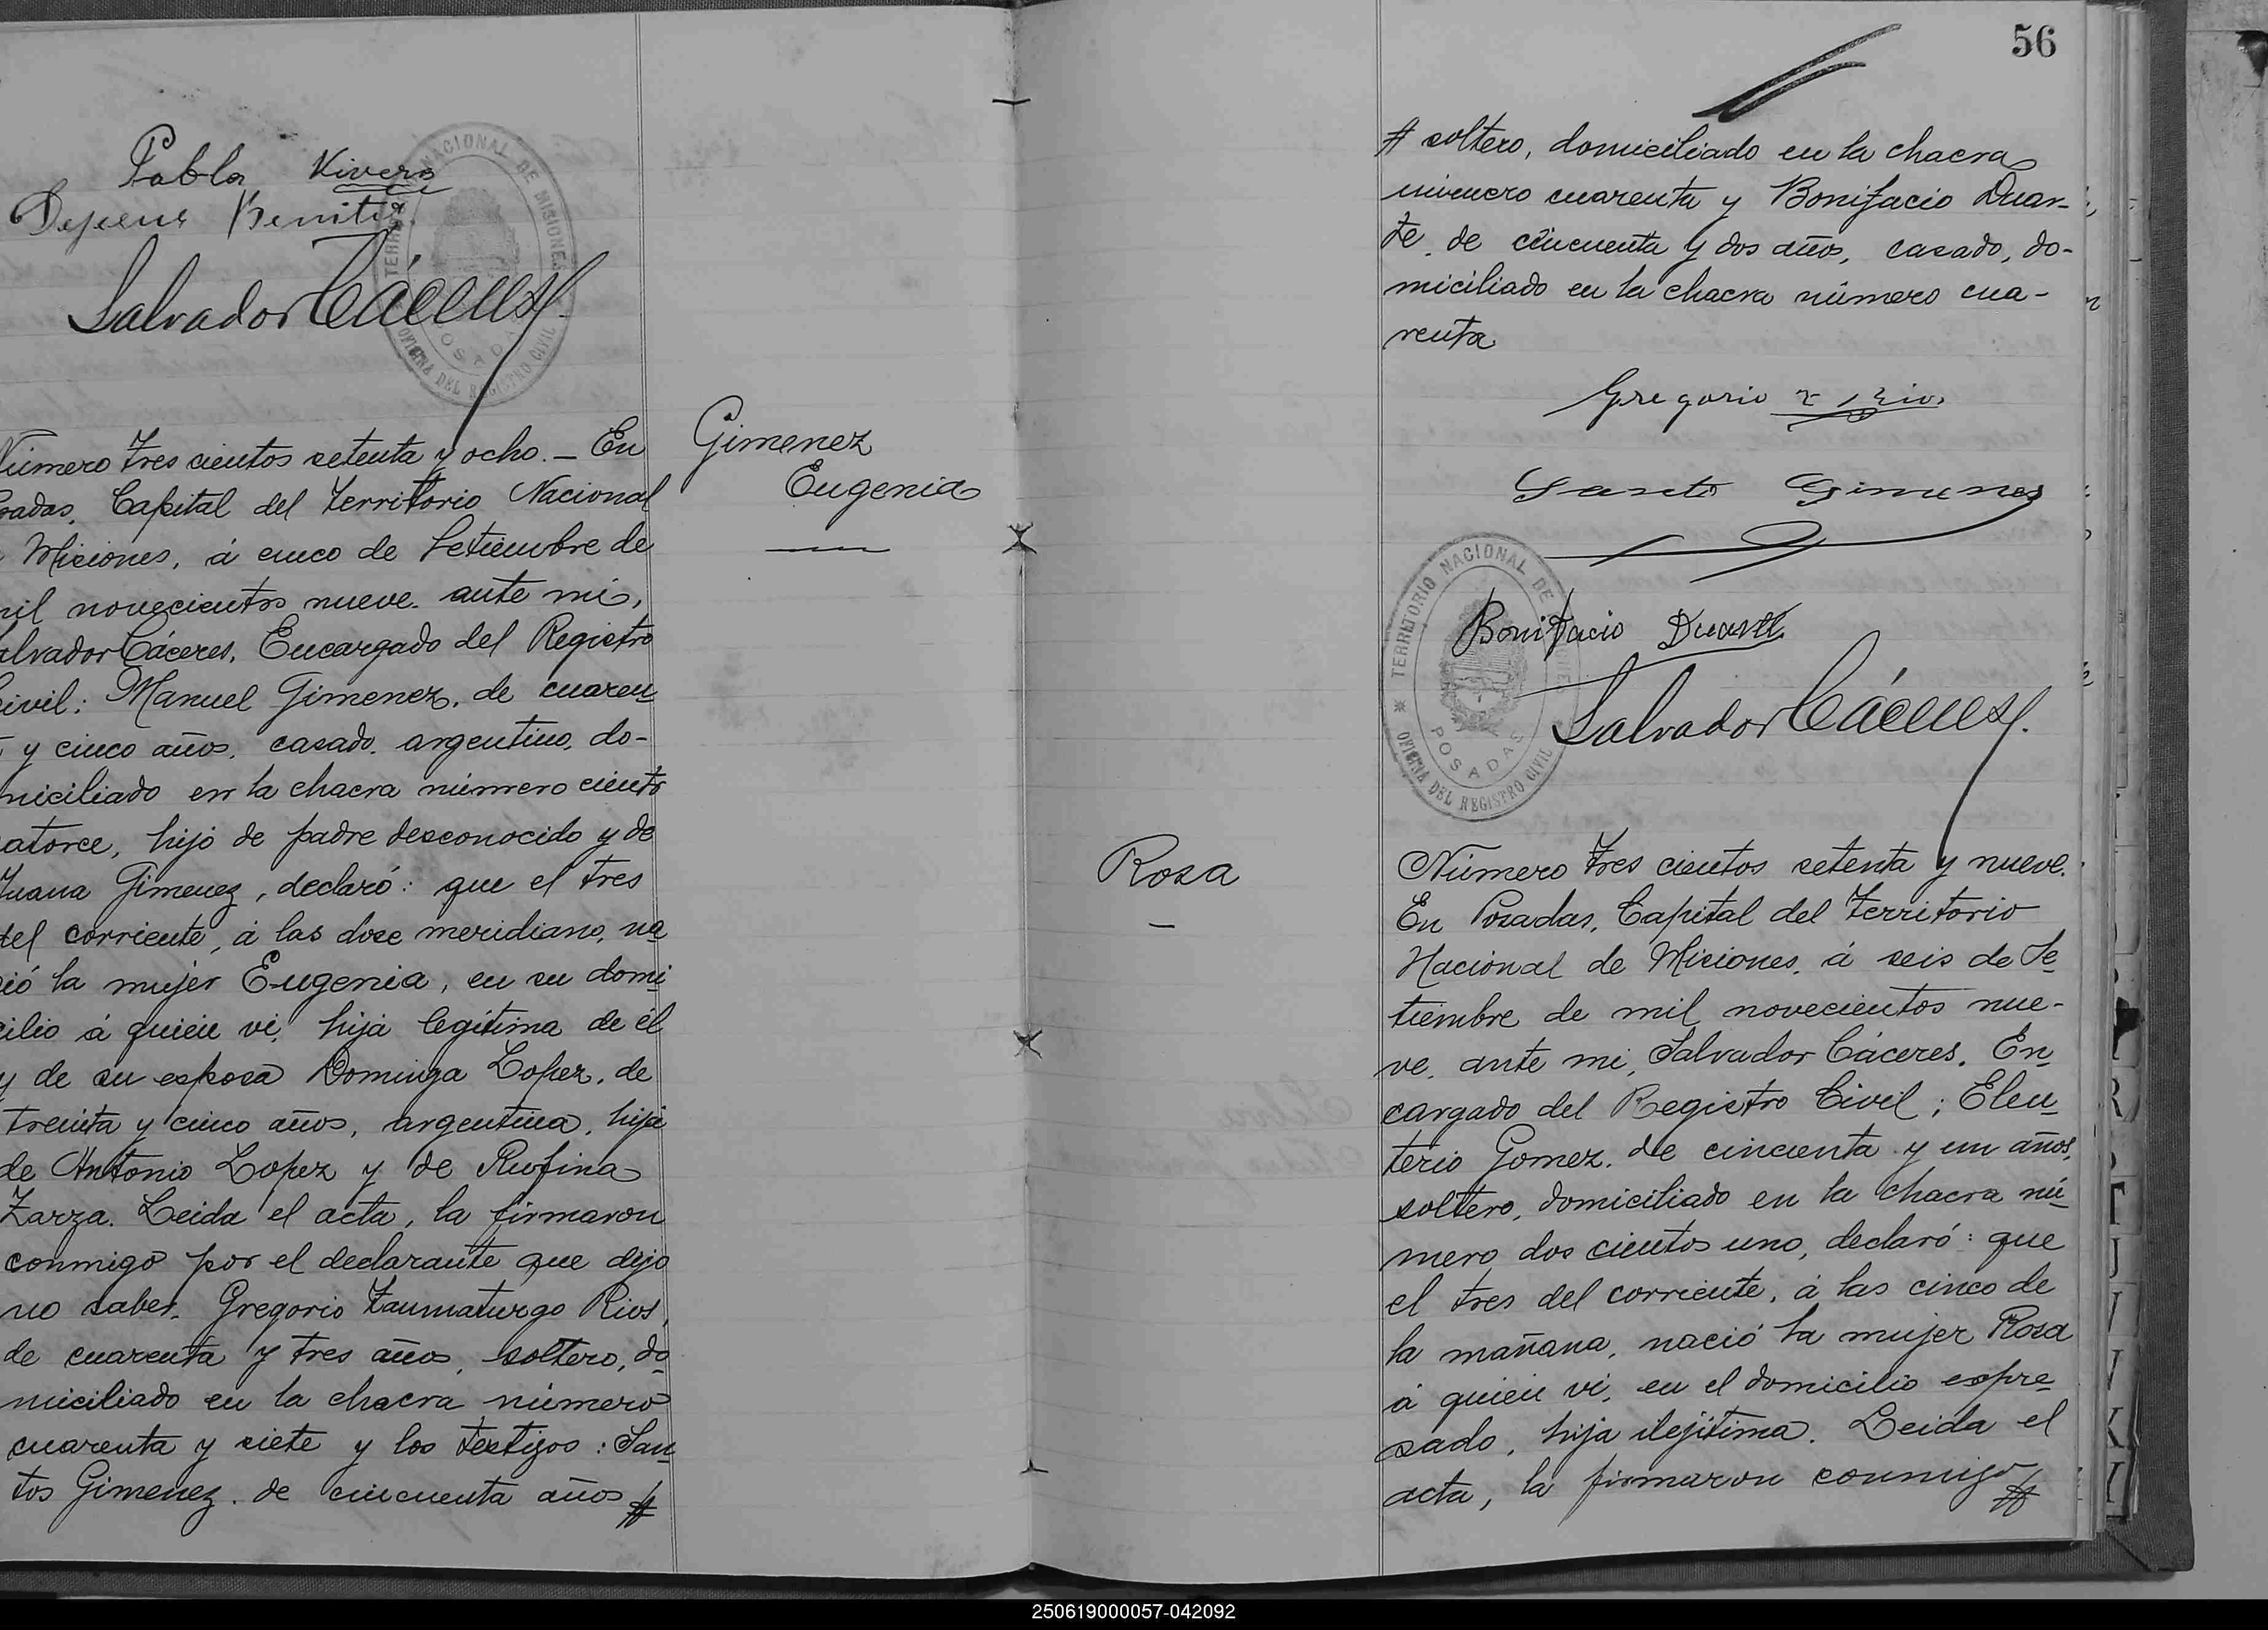 Pabla Vivero
Benitez
Salvador Cáceres
TERRITORIO NACIONAL DE MISIONES
POSADAS
OFICINA DEL REGISTRO CIVIL
Número tres cientos setenta y ocho. — En
sadas, Capital del Territorio Nacional
Misiones, á cinco de Setiembre de
mil novecientos nueve. ante mi,
alvador Cáceres, Encargado del Registro
Civil: Manuel Gimenez, de cuaren
y cinco años, casado, argentino, do-
miciliado en la chacra número ciento
catorce, hijo de padre desconocido y de
Juana Gimenez, declaró: que el tres
del corriente, á las doce meridiano, na
ció la mujer Eugenia, en su domi
cilio á quien vi, hija legítima de él
y de su esposa Dominga Lopez, de
treinta y cinco años, argentina, hija
de Antonio Lopez y de Rufina
Zarza. Leida el acta, la firmaron
conmigo por el declarante que dijo
no saber, Gregorio Taumaturgo Rios,
de cuarenta y tres años, soltero, do
miciliado en la chacra número
cuarenta y siete y los testigos: San
tos Gimenez, de cincuenta años #
Gimenez
Eugenia
56
# soltero, domiciliado en la chacra
número cuarenta y Bonifacio Duar-
te, de cincuenta y dos años, casado, do-
miciliado en la chacra número cua-
renta
Gregorio T Rios
Santo Gimenes
Bonifacio Duarte
Salvador Cáceres
TERRITORIO NACIONAL DE MISIONES
POSADAS
OFICINA DEL REGISTRO CIVIL
Rosa
Número tres cientos setenta y nueve.
En Posadas, Capital del Territorio
Nacional de Misiones, á seis de Se
tiembre de mil novecientos nue-
ve, ante mi, Salvador Cáceres, En
cargado del Registro Civil; Eleu
terio Gomez, de cincuenta y un años,
soltero, domiciliado en la chacra nú
mero dos cientos uno, declaró: que
el tres del corriente, á las cinco de
la mañana, nació la mujer Rosa
á quien vi, en el domicilio espre
sado, hija ilejítima. Leida el
acta, la firmaron conmigo #
250619000057-042092